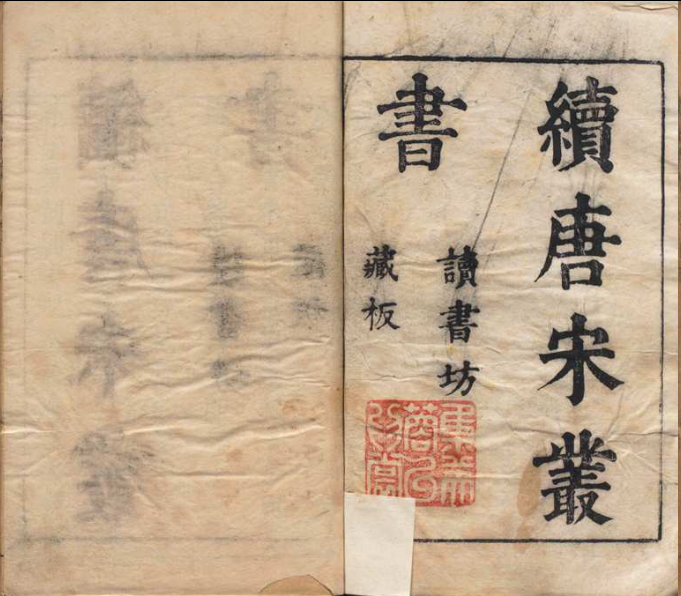 續唐宋叢
書
讀書坊
藏板